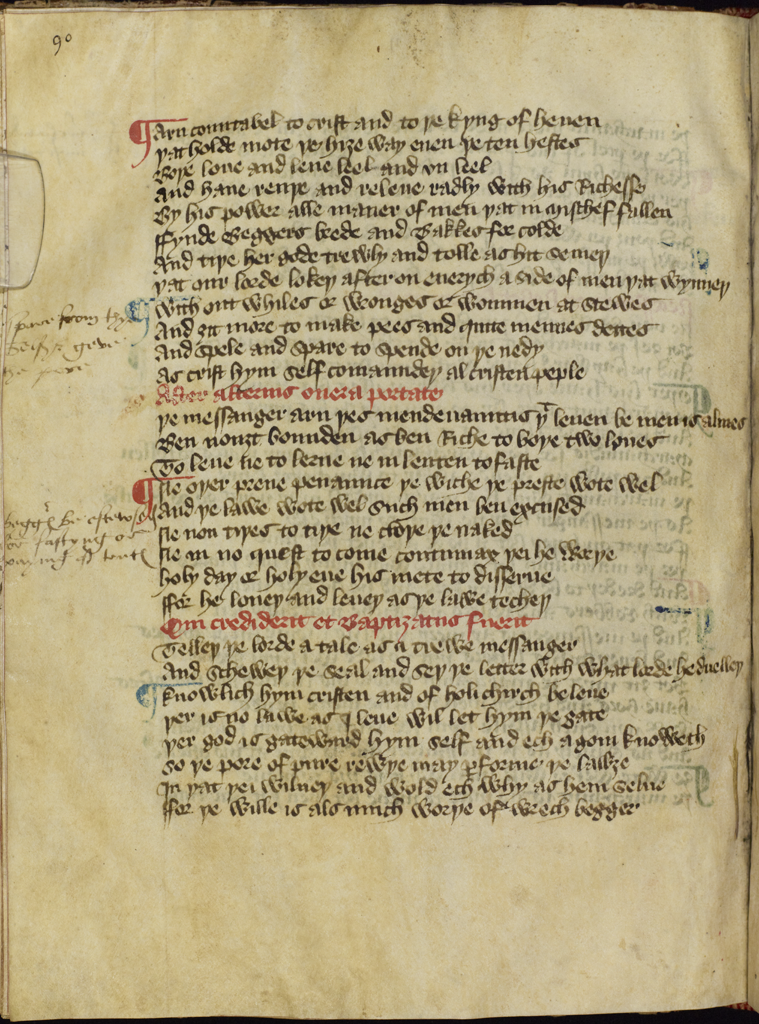 90
Arn countabel to crist and to þe kyng of heuen
þat holde mote þe hize way euen þe ten hestes
Boþe loue and lene leel and vn leel
And haue reuþe and releue radly with his Richesse
By his power alle maner of men þat in mischef fallen
ffynde Beggers brede and Bakkes for colde
And tiþe her gode trewly and tolle as hit semeþ
þat our lorde lokeþ after on euerych a side of men þat wynneþ
With out whiles or wronges or wommen at stewes
And zit more to make pees and quite mennes dettes
And spele and spare to spende on þe nedy
As crist hym self comaundeþ al cristen peple
Alter alterius onera portate
þe messanger arn þes mendenauntis þt leuen be men is almes
Ben nouzt bounden as ben Riche to boþe two loues
To leue ne to lerne ne in lenten to faste
Ne oþer preue penaunce þe wiche þe preste wote wel
And þe lawe wote wel such men ben excused
Ne non tiþes to tiþe ne cloþe þe naked
Ne in no quest to come contumax þei he worþe
holy day or holy eue his mete to disserue
ffor he loueþ and leueþ as þe lawe techeþ
Qui crediderit et Baptizatus fuerit
Telleþ þe lorde a tale as a trewe messanger
And scheweþ þe seal and seþ þe letter with what lorde he duelleþ
Knowlich hym cristen and of holi chirch beleue
þer is no lawe as I leue wil let hym þe gate
þer god is gateward hym self and ech a gom knoweth
So þe pore of pure rewþe may performe þe lawze
In þat þei wilneþ and wold ech why as hem selue
ffor þe wille is als much worþe of wrech begger
spare from thy
selfe & geve
the pore
be excused
for fastyng or
paying of